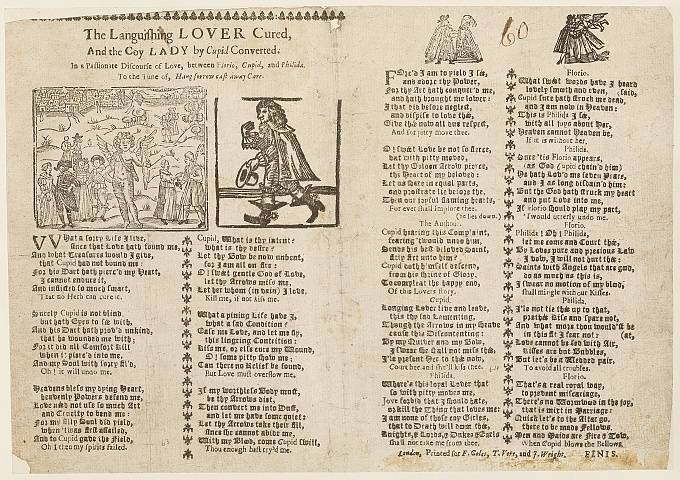 The Languishing LOVER Cured,
And the Coy LADY by Cupid Converted.
In a Passionate Discourse of Love, between Florio, Cupid, and Philida.
To the Tune of, Hang sorrow cast away Care.
WHat a sorry Life I live,
since that Love hath found me,
And what Treasures would I give,
that Cupid had not bound me:
For his Dart hath pierc'd my Heart,
I cannot endure it,
And inflicted so much smart,
That no Herb can cure it.
Surely Cupid is not blind,
but hath Eyes to see with,
And his Dart hath prov'd unkind,
that he wounded me with;
For it did all Comfort kill
when it pierc'd into me,
And my Soul with
Oh! it will undo me.
Heavens bless my dying Heart,
heavenly Powers defend me,
Love need not use so much Art
and Cruelty to end me:
For my silly Soul did yield,
when 'twas first assailed,
And to Cupid gave the Field,
Oh! then my spirits failed.
Cupid, What is thy intent?
what is thy desire?
Let thy Bow be now unbent,
for I am all on fire:
O! sweet gentle God of Love,
let thy Arrows miss me,
Let her whom (in vain) I love,
Kill me, if not kiss me.
What a pining Life have I,
what a sad Condition!
Ease me Love, and let me fly,
this lingring Contrition:
Kiss me, or else cure my Wound,
O! some pitty show me;
Can there no Relief be found,
But Love must overflow me.
If my worthless Body must,
be thy Arrows diet,
Then convert me into Dust,
and let me have some quiet:
Let thy Arrows take their fill,
since she cannot abide me,
With my Blood, come Cupid swill,
Thou enough hast try'd me.
60
FOrc'd I am to yield I see,
and adore thy Power,
For thy Art hath conquer'd me,
and hath brought me lower:
I that did before neglect,
and despise to love thee,
Give thee now all due respect,
And for pitty move thee.
O! sweet Love be not so fierce,
but with pitty moved,
Let thy Golden Arrow pierce,
the Heart of my beloved:
Let us share in equal parts,
and prostrate lie before thee,
Then our joyful flaming hearts,
For ever shall implore thee.
(he lies down.)
The Author.
Cupid hearing this Complaint,
fearing 'twould undo him,
Sends his best beloved Saint,
strip Art unto him:
Cupid doth himself descend,
from his shrine of Glory,
To compleat the happy end,
Of this Lovers story.
Cupid.
Longing Lover live and leave,
this thy sad Lamenting,
Though the Arrows in my Greave
cause this Discontenting:
By my Quiver and my Bow,
I swear she shall not miss thee,
I'le present her to thee now,
Court her and she'll kiss thee.
Philida.
Where's this loyal Lover that
so with pitty moves me,
Jove forbid that I should hate,
or kill the Thing that loves me:
I am none of those coy Girles,
that to Death will doom thee,
Knights, & Lords, & Dukes & Earls
shall not take me from thee.
Florio.
What sweet words have I heard
lovely smooth and even, (said,
Cupid sure hath struck me dead,
and I am now in Heaven:
This is Philida I see,
with all joys about her,
Heaven cannot Heaven be,
If it is without her.
Philida.
Since 'tis Florio appears,
(as God Cupid chain'd him)
Ye hath Lov'd me seven Years,
and I as long disdain'd him:
But the God hath struck my heart
and put Love into me,
If Florio should play my part,
'Twould utterly undo me.
Florio.
Philida! Oh! Philida,
let me come and Court thee,
By Loves pure and precious Law
I vow, I will not hurt thee:
Saints with Angels that are good,
do as much as this is,
I swear no motion of my blood,
shall mingle with our Kisses.
Philida.
I'le not tie thee up to that,
prethee Kiss and spare not,
And what means thou would'st be
in this fit I fear not: (at,
Love cannot be fed with Air,
Kisses are but Bubbles,
But let's be a Wedded pair,
To avoid all troubles.
Florio.
That's a real royal way,
to prevent miscarriage,
There's no Wormwood in the joy,
that is mixt in Marriage:
Quickly let's to the Altar go,
there to be made Fellows,
Men and Maids are Fire & Tow,
When Cupid blows the Bellows.
London, Printed for F. Coles, T. Vere, and J. Wright. FINIS.